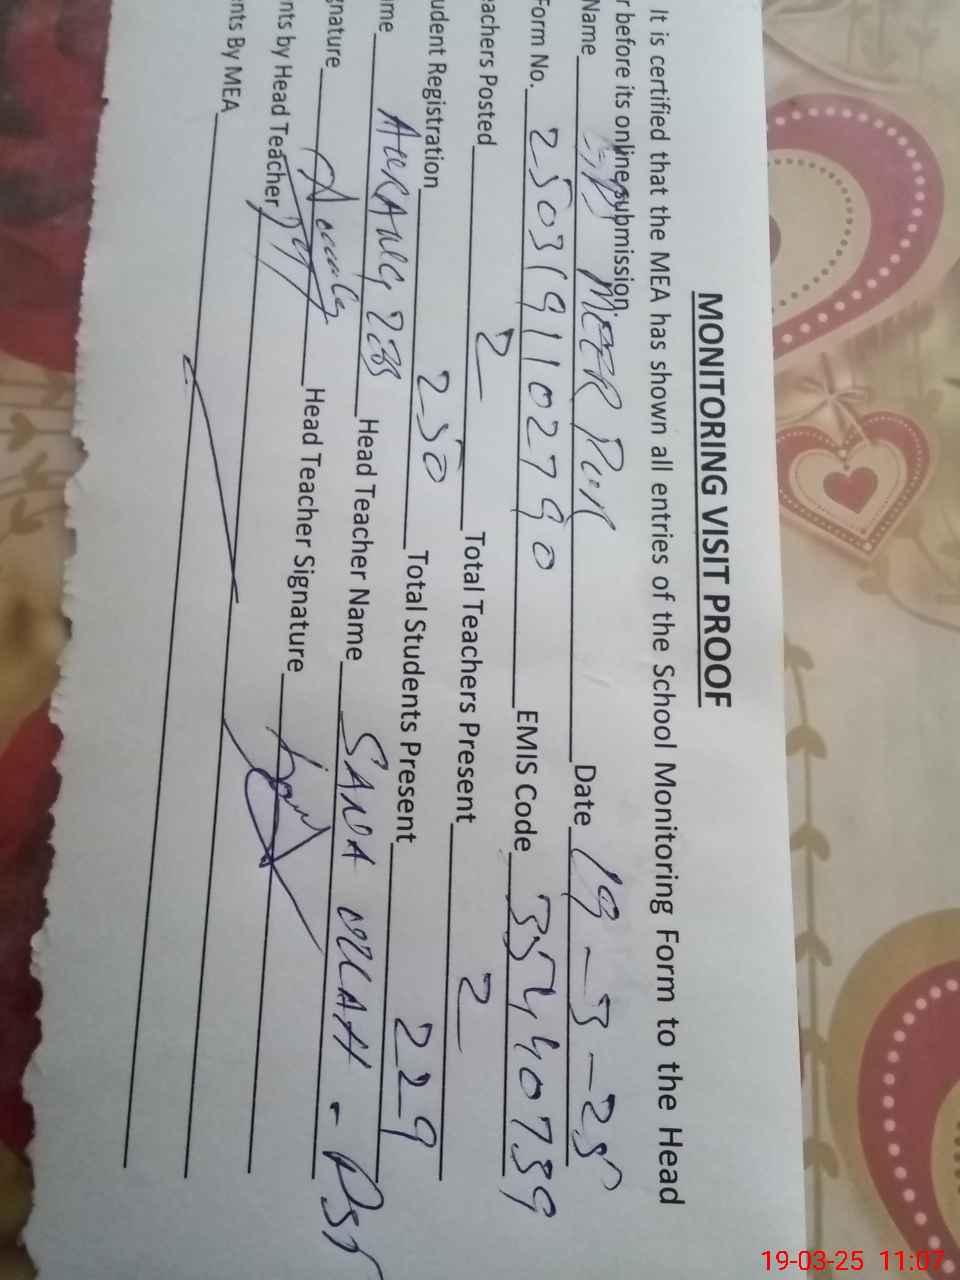 MONITORING VISIT PROOF
It is certified that the MEA has shown all entries of the School Monitoring Form to the Head
r before its online submission.
Name MEER PUR Date 19-3-25
Form No. 2503191102790 EMIS Code 35440739
eachers Posted 2 Total Teachers Present 2
udent Registration 250 Total Students Present 229
me AURANG ZEB Head Teacher Name SANA ULLAH - PST
gnature Head Teacher Signature
nts by Head Teacher
nts By MEA
19-03-25 11:07